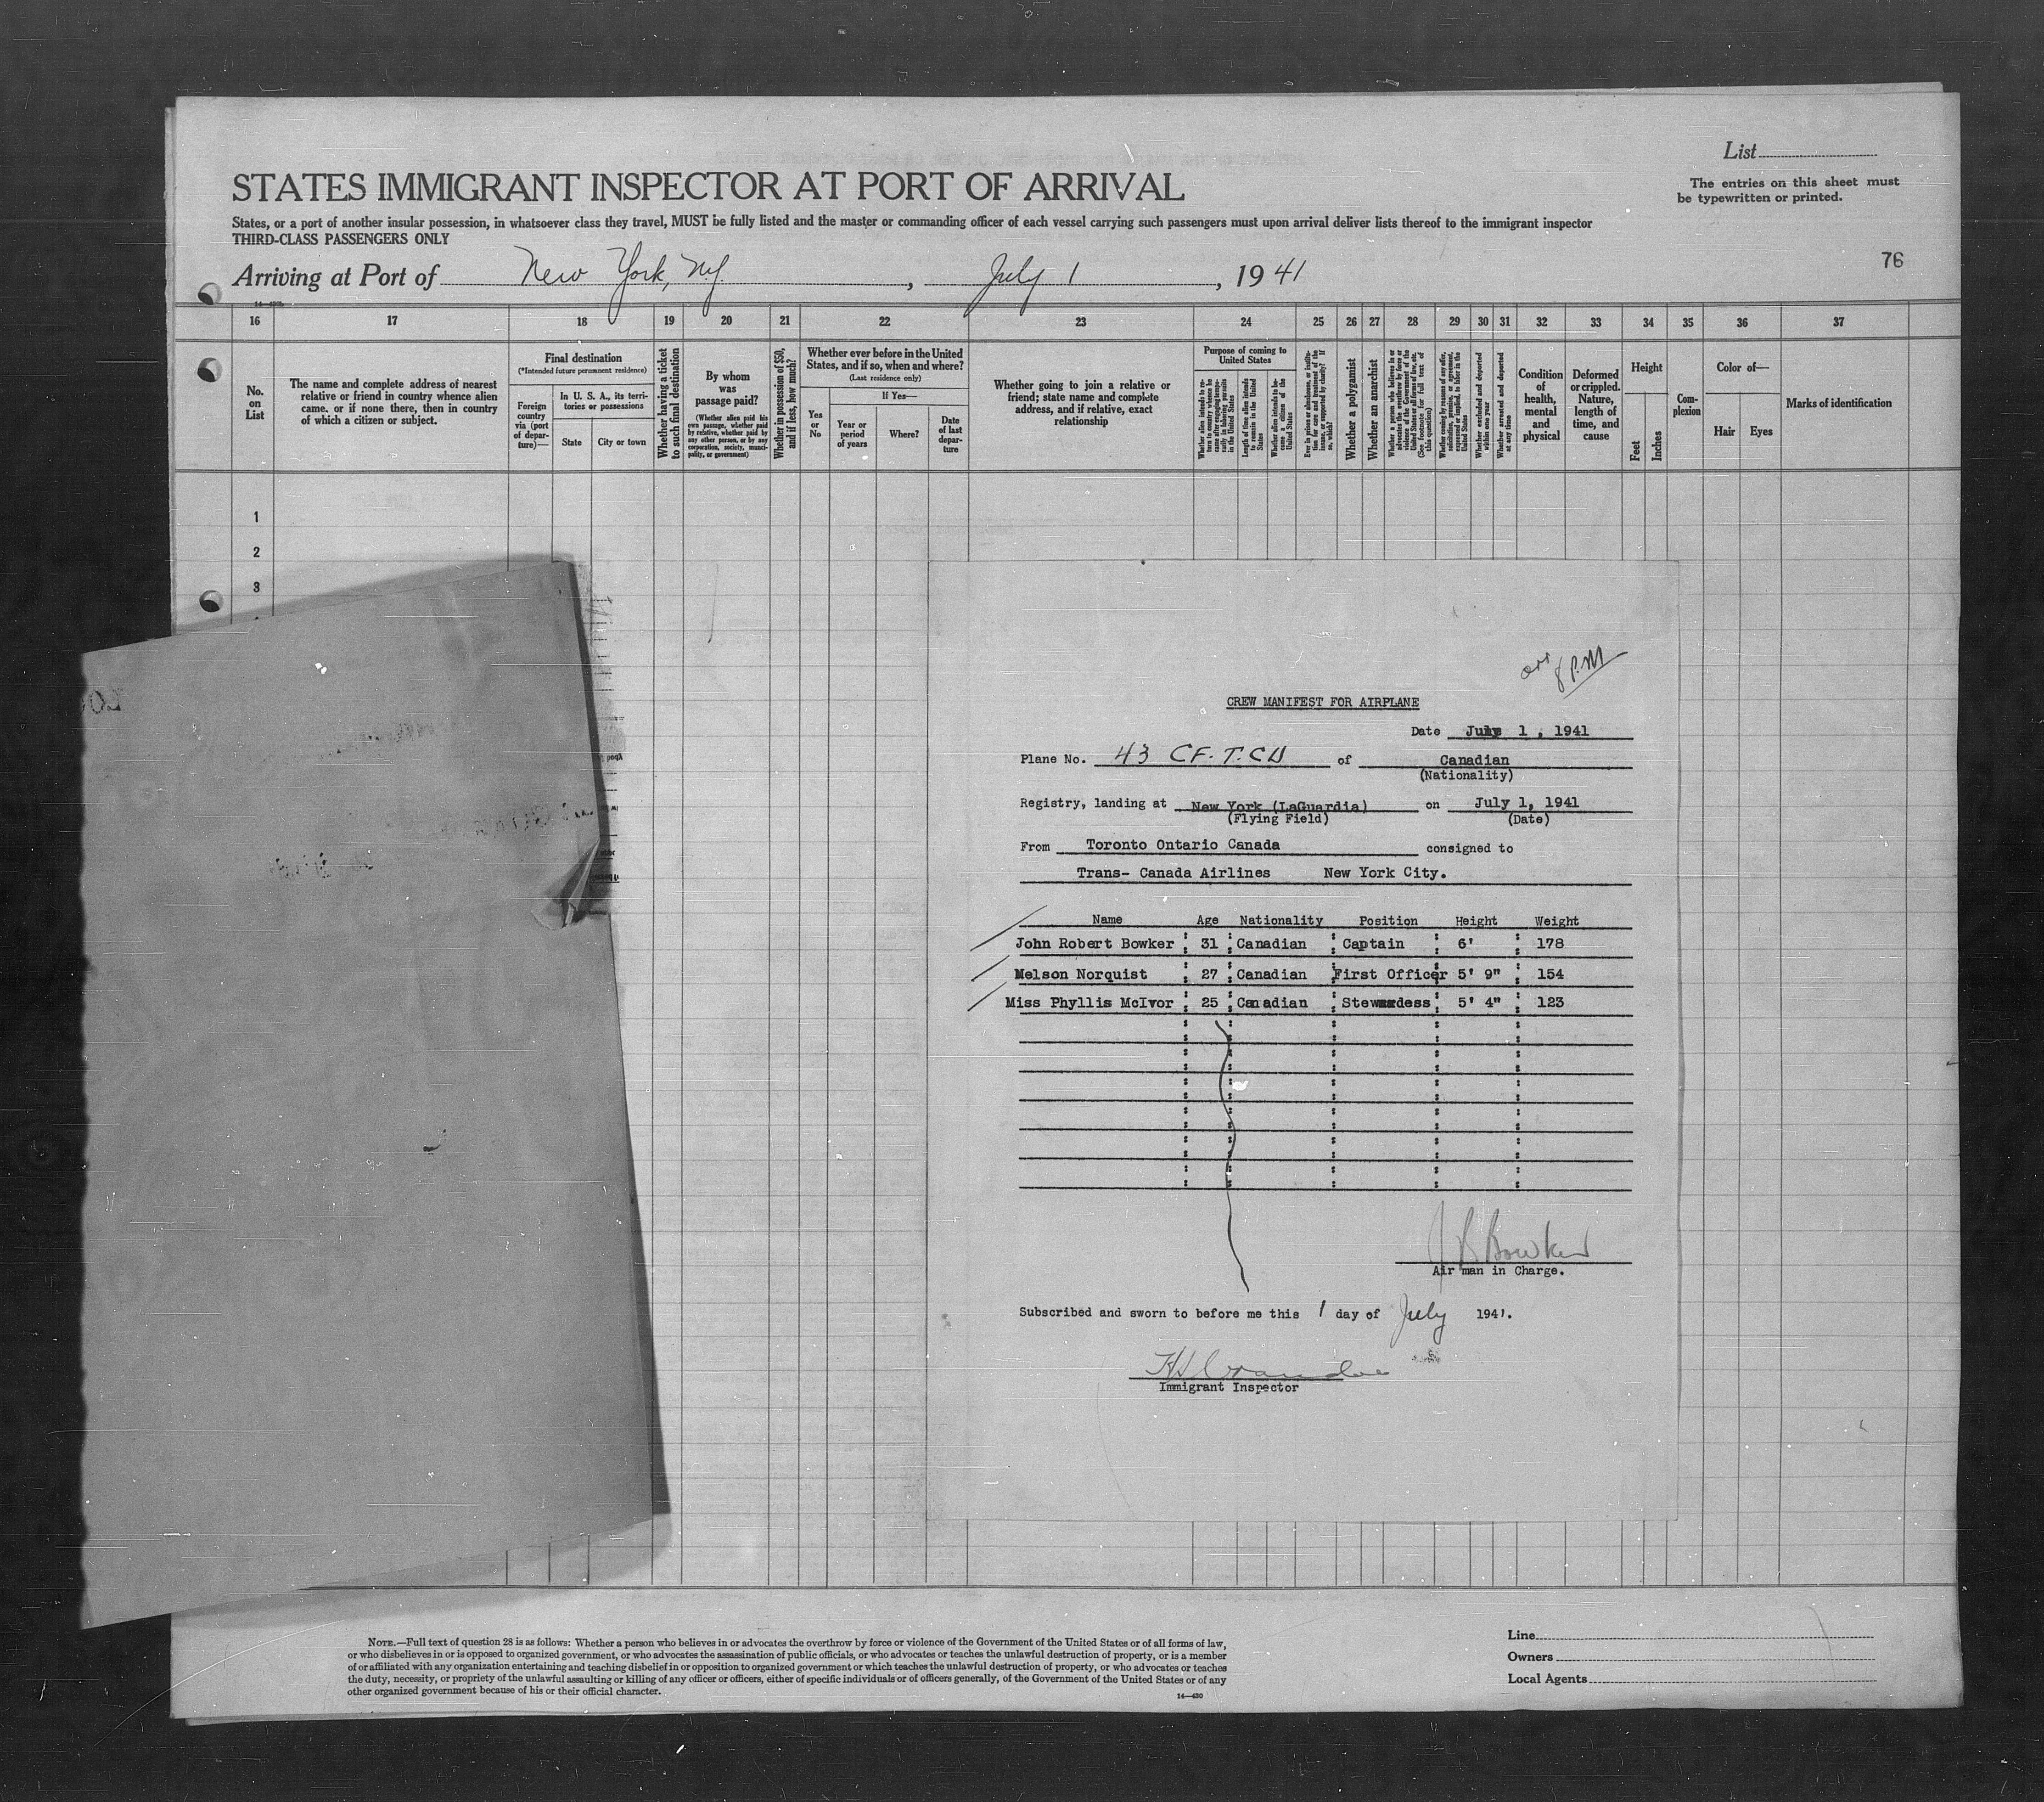 List
The entries on this sheet must
be typewritten or printed.
STATES IMMIGRANT INSPECTOR AT PORT OF ARRIVAL
States, or a port of another insular possession, in whatsoever class they travel, MUST be fully listed and the master or commanding officer of each vessel carrying such passengers must upon arrival deliver lists thereof to the immigrant inspector
THIRD-CLASS PASSENGERS ONLY
76
Arriving at Port of New York, N.Y. , July 1 , 19 41
16 17 18 19 20 21 22 23 24 25 26 27 28 29 30 31 32 33 34 35 36 37
No. on List
The name and complete address of nearest
relative or friend in country whence alien
came. or if none there, then in country
of which a citizen or subject.
Final destination
(*Intended future permanent residence)
Foreign country via (port of departure)—
In U. S. A., its territories or possessions
State
City or town
Whether having a ticket to such final destination
By whom was passage paid?
(Whether alien paid his own passage, whether paid by relative, whether paid by any other person, or by any corporation, society, municipality, or government)
Whether in possession of $50, and if less, how much?
Whether ever before in the United
States, and if so, when and where?
(Last residence only)
Yes or No
If Yes—
Year or period of years
Where?
Date of last departure
Whether going to join a relative or
friend; state name and complete
address, and if relative, exact
relationship
Purpose of coming to
United States
Length of time alien intends to remain in the United States
Whether alien intends to become a citizen of the United States
Whether a polygamist
Whether an anarchist
(See footnote for full text of this question)
Whether excluded and deported within one year
Whether arrested and deported at any time
Condition of health, mental and physical
Deformed or crippled. Nature, length of time, and cause
Height
Feet
Inches
Complexion
Color of—
Hair
Eyes
Marks of identification
1
2
3
arr
8 P.M
CREW MANIFEST FOR AIRPLANE
Date July 1 , 1941
Plane No. 43 CF.T.CD of Canadian
(Nationality)
Registry, landing at New York (LaGuardia) on July 1, 1941
(Flying Field) (Date)
From Toronto Ontario Canada consigned to
Trans- Canada Airlines New York City.
Name Age Nationality Position Height Weight
John Robert Bowker : 31 : Canadian : Captain : 6' : 178
Melson Norquist : 27 : Canadian : First Officer : 5' 9" : 154
Miss Phyllis McIvor : 25 : Canadian : Stewardess : 5' 4" : 123
J R Bowker
Air man in Charge.
Subscribed and sworn to before me this 1 day of July 1941.
Immigrant Inspector
NOTE.—Full text of question 28 is as follows: Whether a person who believes in or advocates the overthrow by force or violence of the Government of the United States or of all forms of law,
or who disbelieves in or is opposed to organized government, or who advocates the assassination of public officials, or who advocates or teaches the unlawful destruction of property, or is a member
of or affiliated with any organization entertaining and teaching disbelief in or opposition to organized government or which teaches the unlawful destruction of property, or who advocates or teaches
the duty, necessity, or propriety of the unlawful assaulting or killing of any officer or officers, either of specific individuals or of officers generally, of the Government of the United States or of any
other organized government because of his or their official character.
14—430
Line
Owners
Local Agents